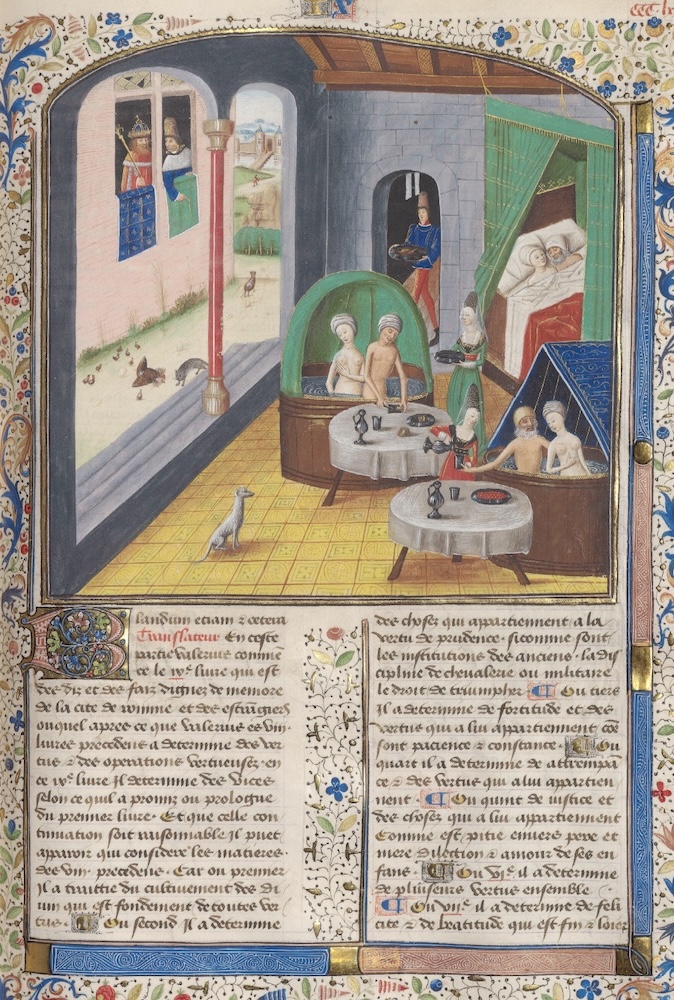 IX
landum etiam & cetera
Translateur En ceste
partie valerius commē
ce le ixe. liure qui est
des diz et des faiz dignez de memoire
de la cite de romme et des estrāgiers
ouquel apres ce que valerius es viij.
liures precedens a determine des ver
tus & des operations vertueuses. en
ce ixe. liure Il determine des vices
selon ce quil a promis ou prologue
du premier liure. Et que celle con
tinuation soit raisonnable il puet
apparoir qui considere les matieres.
des viij. precedens. Car ou premier
Il a traittie du cultiuement des di
eux qui est fondement de toutes ver
tus. Ou second Il a determine
des choses qui appartiennent a la
vertu de prudence. sicomme sont
les institutions des anciens. la dis
cipline de cheualerie ou militaire
le droit de triumpher Ou tiers
Il a determine de fortitude et des
vertus qui a lui appartiennent cōe
sont pacience & constance. Ou
quart il a determine de attrempā
ce & des vertus qui a lui appartien
nent. Ou quint de iustice et
des choses qui a lui appartiennent
Comme est pitie enuers pere et
mere dilection & amour de ses en
fans. Ou vje. il a determine
de pluiseurs vertus ensemble
Ou vije. il a determine de feli
cite & de beatitude qui est fin & loier